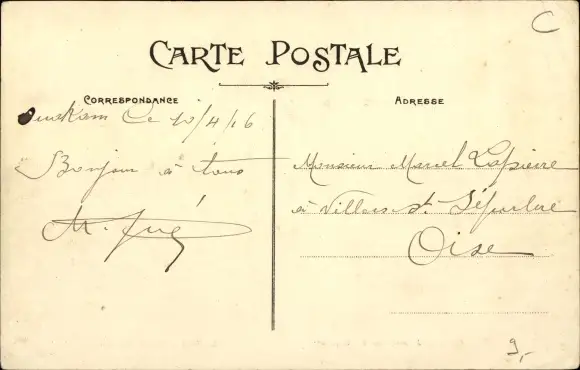 C
CARTE POSTALE
CORRESPONDANCE
ADRESSE
Ce 10/4/16
Bonjour à tous
M.
Monsieur Marcel Lapierre
à Villers St. Sépulcre
Oise
9,-